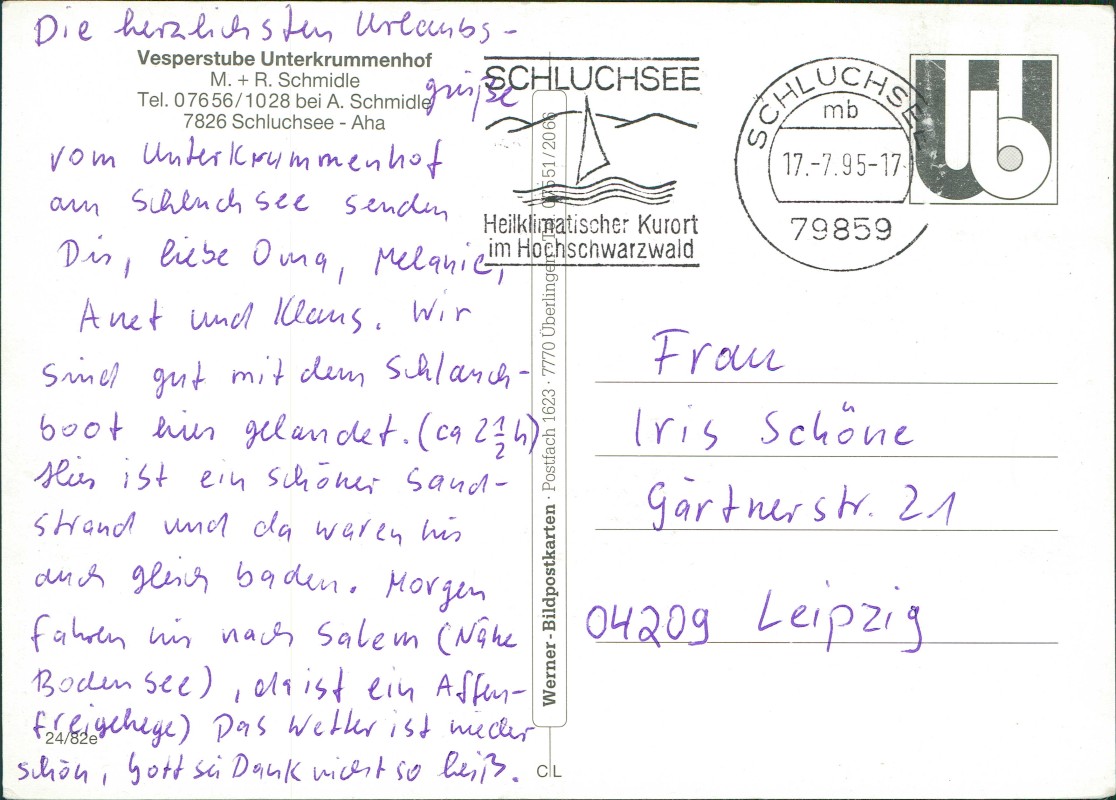 Die herzlichsten Urlaubs-
grüße
Vesperstube Unterkrummenhof
M. + R. Schmidle
Tel. 07656/1028 bei A. Schmidle
7826 Schluchsee - Aha
vom Unterkrummenhof
am Schluchsee senden
Dir, liebe Oma, Melanie,
Anet und Klaus. Wir
sind gut mit dem Schlauch-
boot hier gelandet. (ca 2 1/2 h)
Hier ist ein schöner Sand-
strand und da waren wir
auch gleich baden. Morgen
fahren wir nach Salem (Nähe
Bodensee), da ist ein Affen-
freigehege) Das Wetter ist wieder
schön, Gott sei Dank nicht so heiß.
24/82e
Werner-Bildpostkarten · Postfach 1623 · 7770 Überlingen, Tel. 07551/2066
C L
SCHLUCHSEE
Heilklimatischer Kurort
im Hochschwarzwald
SCHLUCHSEE
mb
17.-7.95-17
79859
Ub
Frau
Iris Schöne
Gärtnerstr. 21
04209 Leipzig